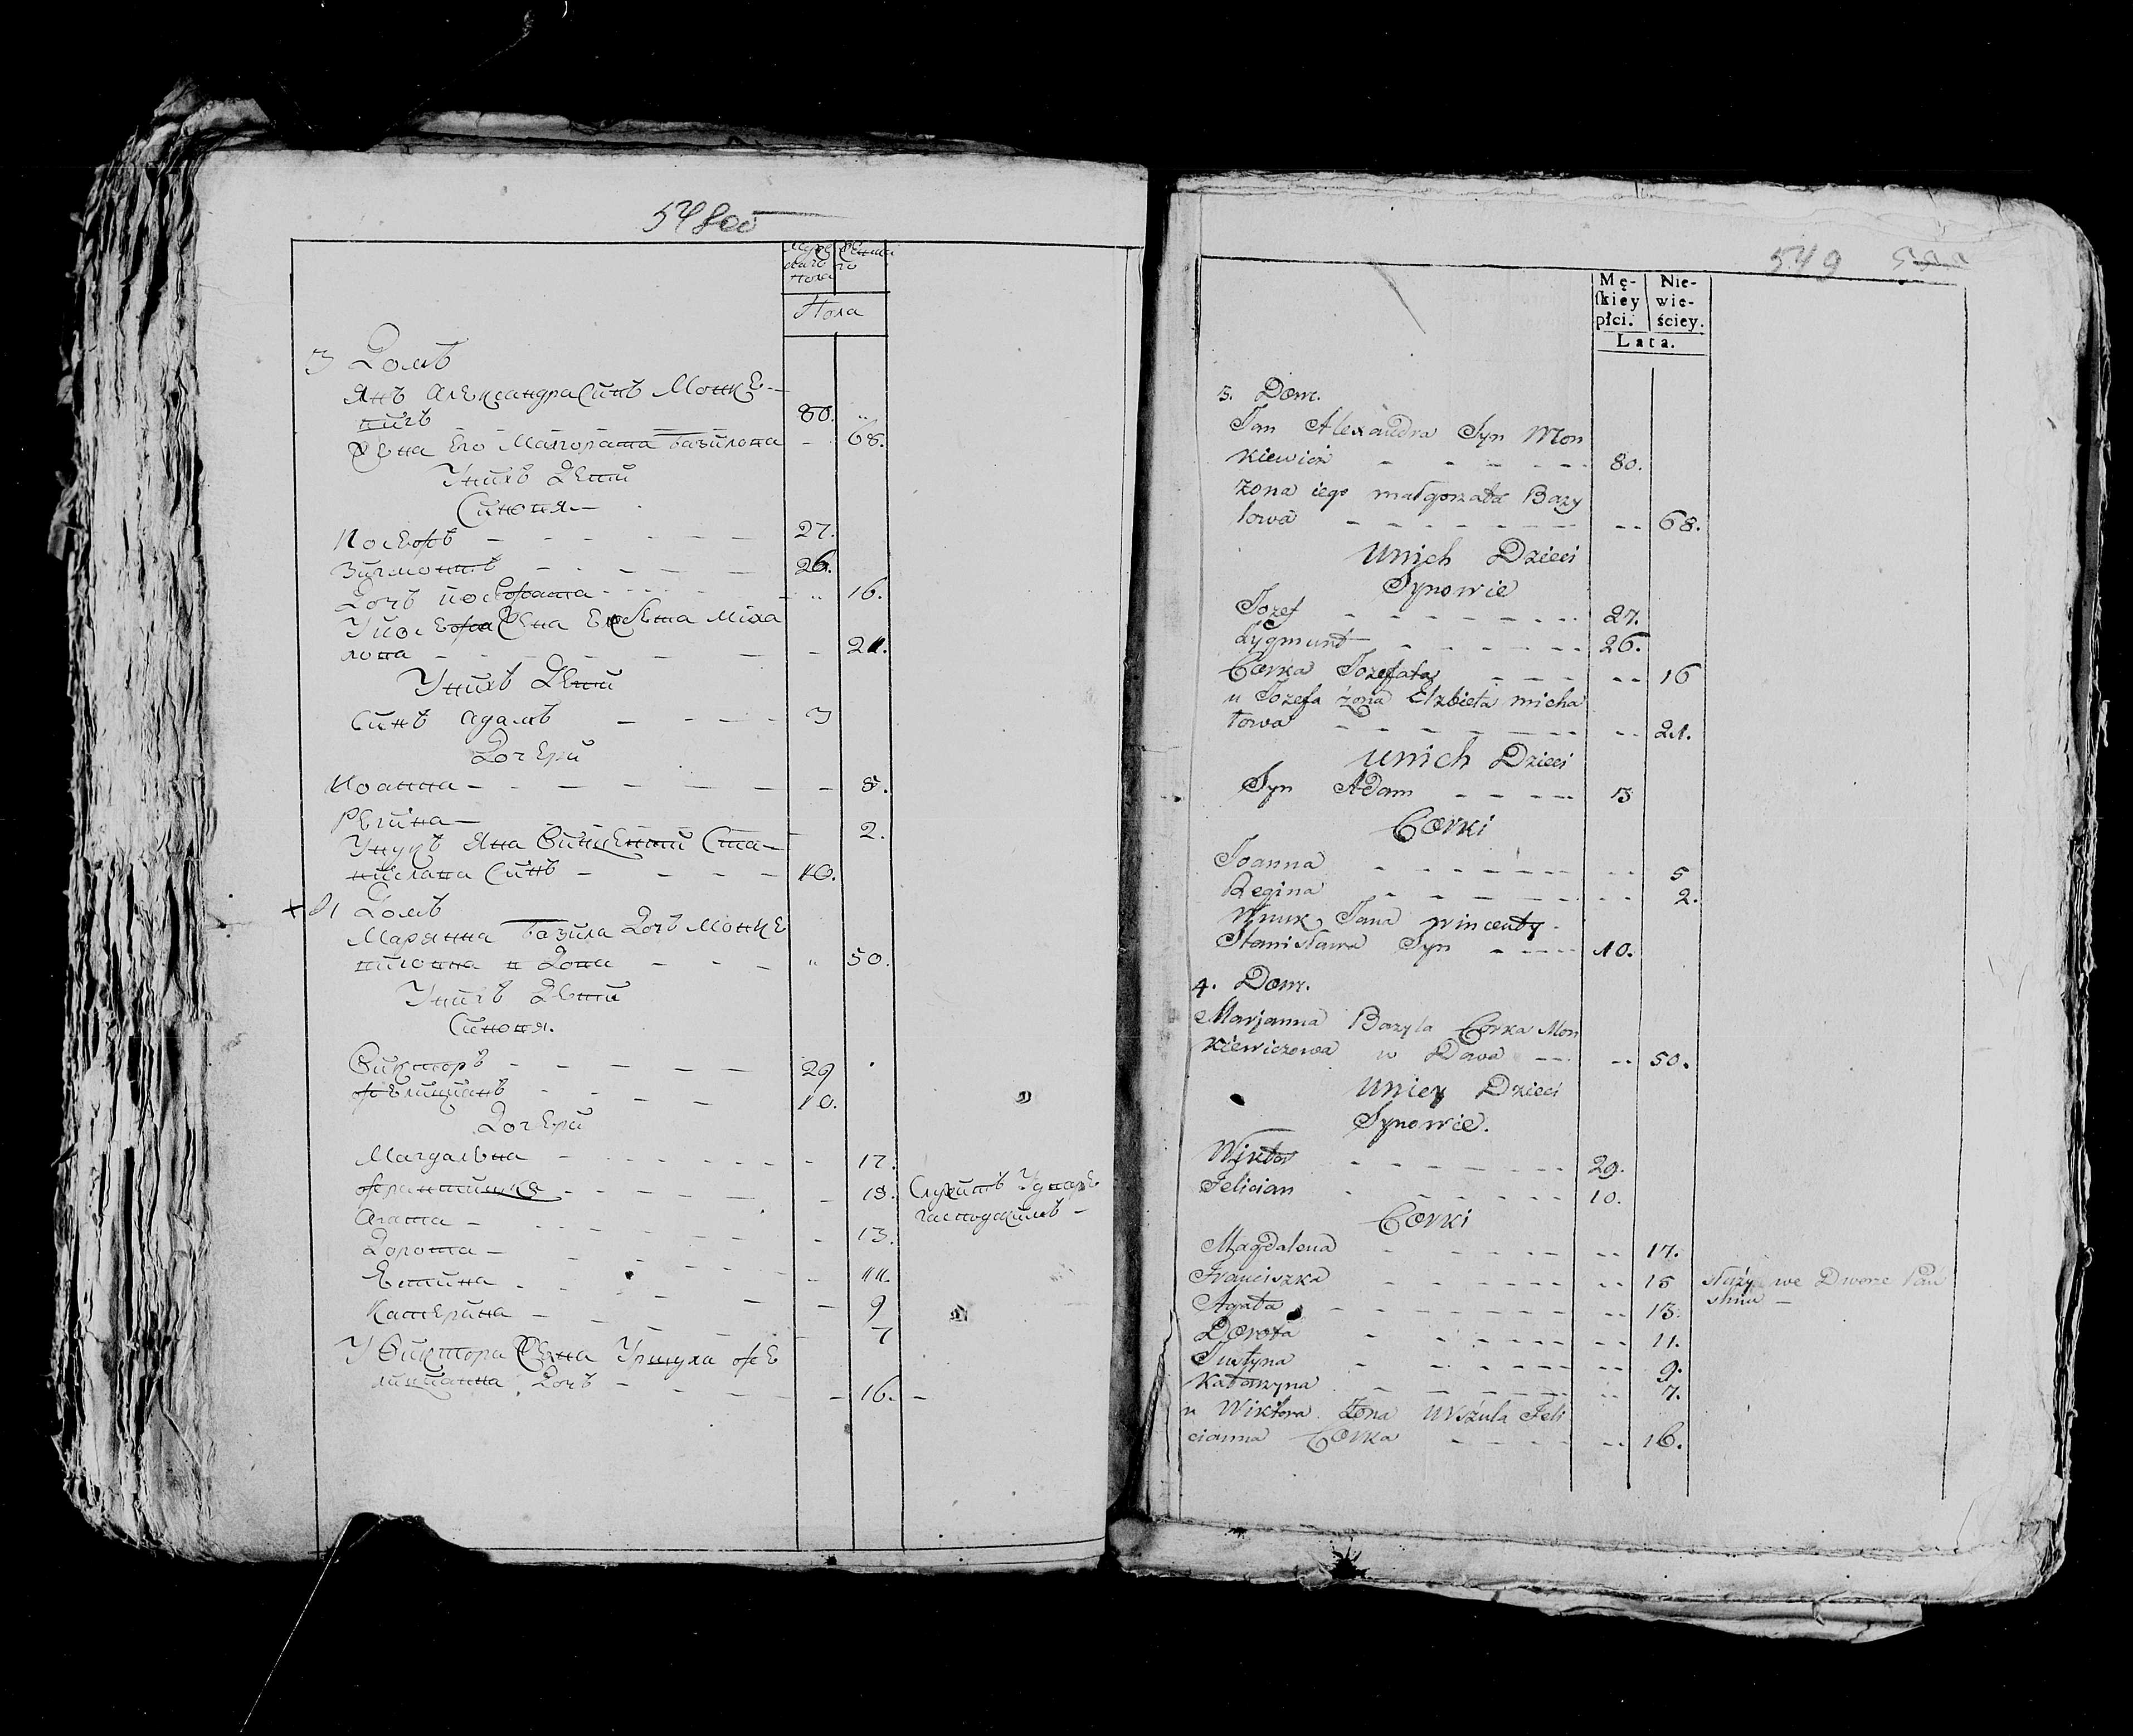 548об
Мужескаго Женскаго
пола
Пола
3 Домъ
Янъ Александра Синъ Монке-
вичъ 80. „
Жена Его Малгората Базилова - - 68.
Унихъ Дети
Синовя.-
Иосефъ - - - - - - 27.
Зигмонтъ - - - - - 26.
Дочъ иосефата - - - - „ 16.
У иосефа Жена Елсбета Миха
лова - - - - - - 21.
Унихъ Дети
Синъ Адамъ - - - - 3
Дочери
Иоанна - - - - - - - 5.
Регина - - - - - - - 2.
Унукъ Яна Винценти Ста-
нислава Синъ - - - - 10.
+ 4 Домъ
Марянна Базила Дочъ Монке
вичовна в Дова - - - „ 50.
Унихъ Дети
Синовя.
Викторъ - - - - - - 29
Фелициянъ - - - - - 10.
Дочери
Магдалена - - - - - - 17.
Францишка - - - - - - 15. Служитъ У дворе
Агата - - - - - - - 13. господскимъ -
Дорота - - - - - - - 11.
Естина - - - - - - - 9
Катерина - - - - - - 7
У Виктора Жена Уршула Фе
лицианна Дочъ - - - - - 16. -
549
Mę-
skiey
płci.
Nie-
wie-
ściey.
Lata.
3. Dom.
Jan Alexandra Syn Mon
kiewicz - - - - - - 80.
żona iego małgorzata Bazy
lowa - - - - - - - - - 68.
Unich Dzieci
Synowie
Jozef - - - - - - - 27.
Zygmunt - - - - - - 26.
Corka Jozefata - - - - - - 16
u Jozefa żona Elzbieta micha
łowa - - - - - - - - - 21.
Unich Dzieci
Syn Adam - - - - 3
Corki
Joanna - - - - - - - - 5
Regina - - - - - - - - 2.
Wnuk Jana wincenty.
Stanisława Syn - - - - 10.
4. Dom.
Marjanna Bazyla Corka Mon
kiewiczowa w Dowa - - - - 50.
Uniey Dzieci
Synowie.
Wiktor - - - - - - - 29.
Felician - - - - - - 10.
Corki
Magdalena - - - - - - - 17.
Franciszka - - - - - - - 15 służy we Dworze Pań
Agata - - - - - - - - - 13. skim -
Dorota - - - - - - - - - 11.
Justyna - - - - - - - - 9.
Katarzyna - - - - - - - - 7.
u Wiktora Zona Urszula Feli
cianna Corka - - - - - - 16.